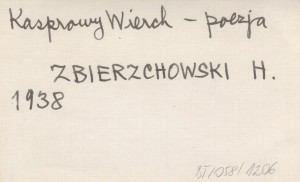 Kasprowy Wierch - poezja
ZBIERZCHOWSKI H.
1938
BJ/058/1206